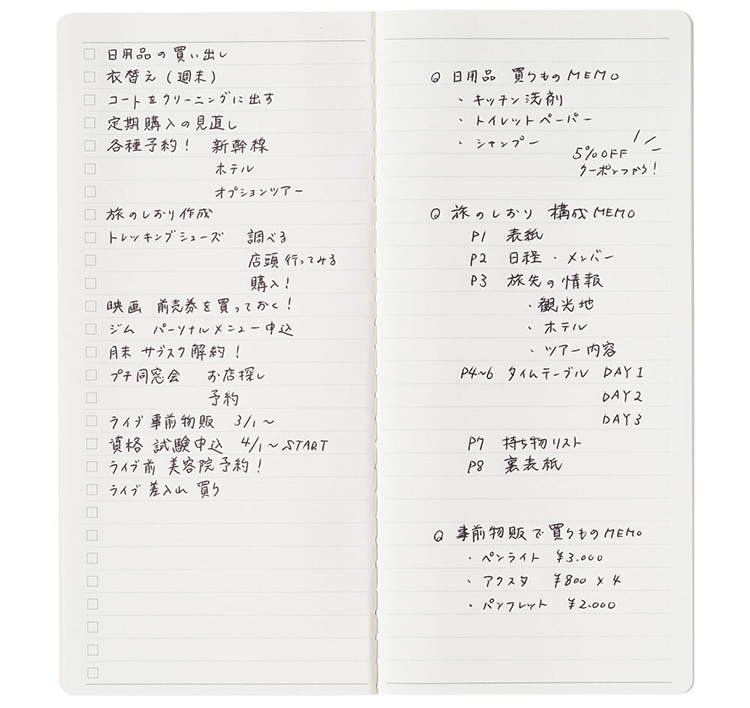 日用品の買い出し
衣替え(週末)
コートをクリーニングに出す
定期購入の見直し
各種予約! 新幹線
ホテル
オプションツアー
旅のしおり作成
トレッキングシューズ 調べる
店頭行ってみる
購入!
映画 前売券を買っておく!
ジム パーソナルメニュー申込
月末 サブスク解約!
プチ同窓会 お店探し
予約
ライブ事前物販 3/1〜
資格 試験申込 4/1〜START
ライブ前 美容院予約!
ライブ差入れ 買う
Q 日用品 買うものMEMO
・キッチン洗剤
・トイレットペーパー
・シャンプー
5%OFF
クーポンつかう!
Q 旅のしおり 構成MEMO
P1 表紙
P2 日程・メンバー
P3 旅先の情報
・観光地
・ホテル
・ツアー内容
P4~6 タイムテーブル DAY1
DAY2
DAY3
P7 持ち物リスト
P8 裏表紙
Q 事前物販で買うものMEMO
・ペンライト ¥3.000
・アクスタ ¥800×4
・パンフレット ¥2.000